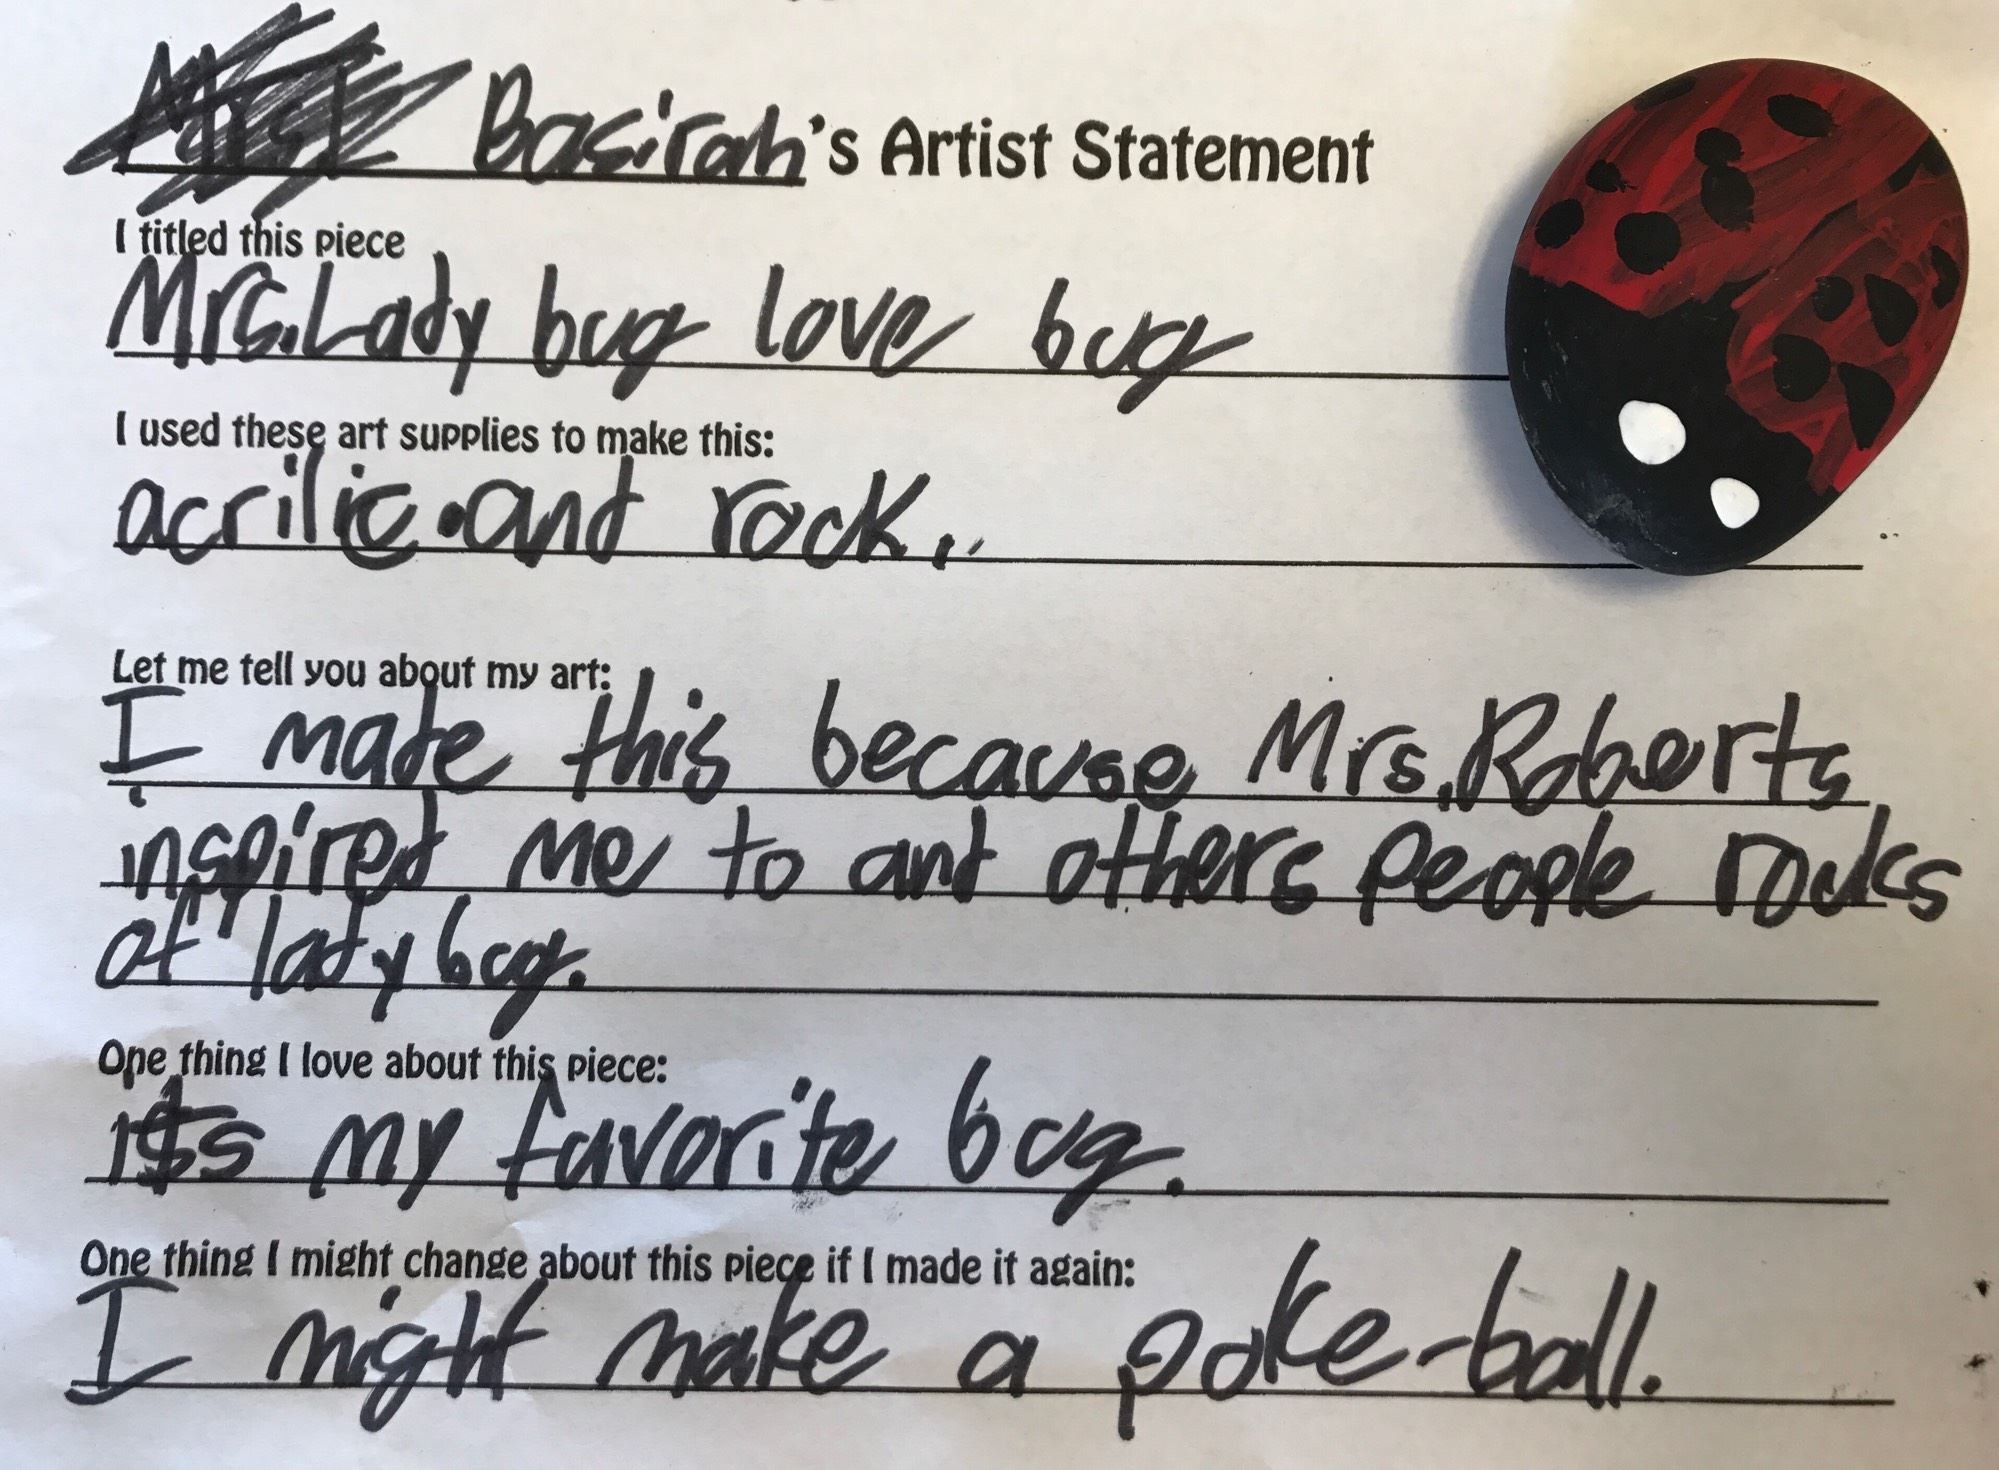 Basirah's Artist Statement
I titled this piece
Mrs. Lady bug love bug
I used these art supplies to make this:
acrilic. and rock..
Let me tell you about my art:
I made this because Mrs. Roberts
inspired me to and others people rocks
of lady bug.
One thing I love about this piece:
its my favorite bug.
One thing I might change about this piece if I made it again:
I might make a poke-ball.